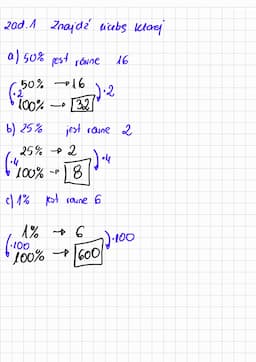 zad.1 Znajdź liczbę której
a) 50% jest równe 16
50% → 16
·2 ·2
100% → 32
b) 25% jest równe 2
25% → 2
·4 ·4
100% → 8
c) 1% jest równe 6
1% → 6
·100 ·100
100% → 600